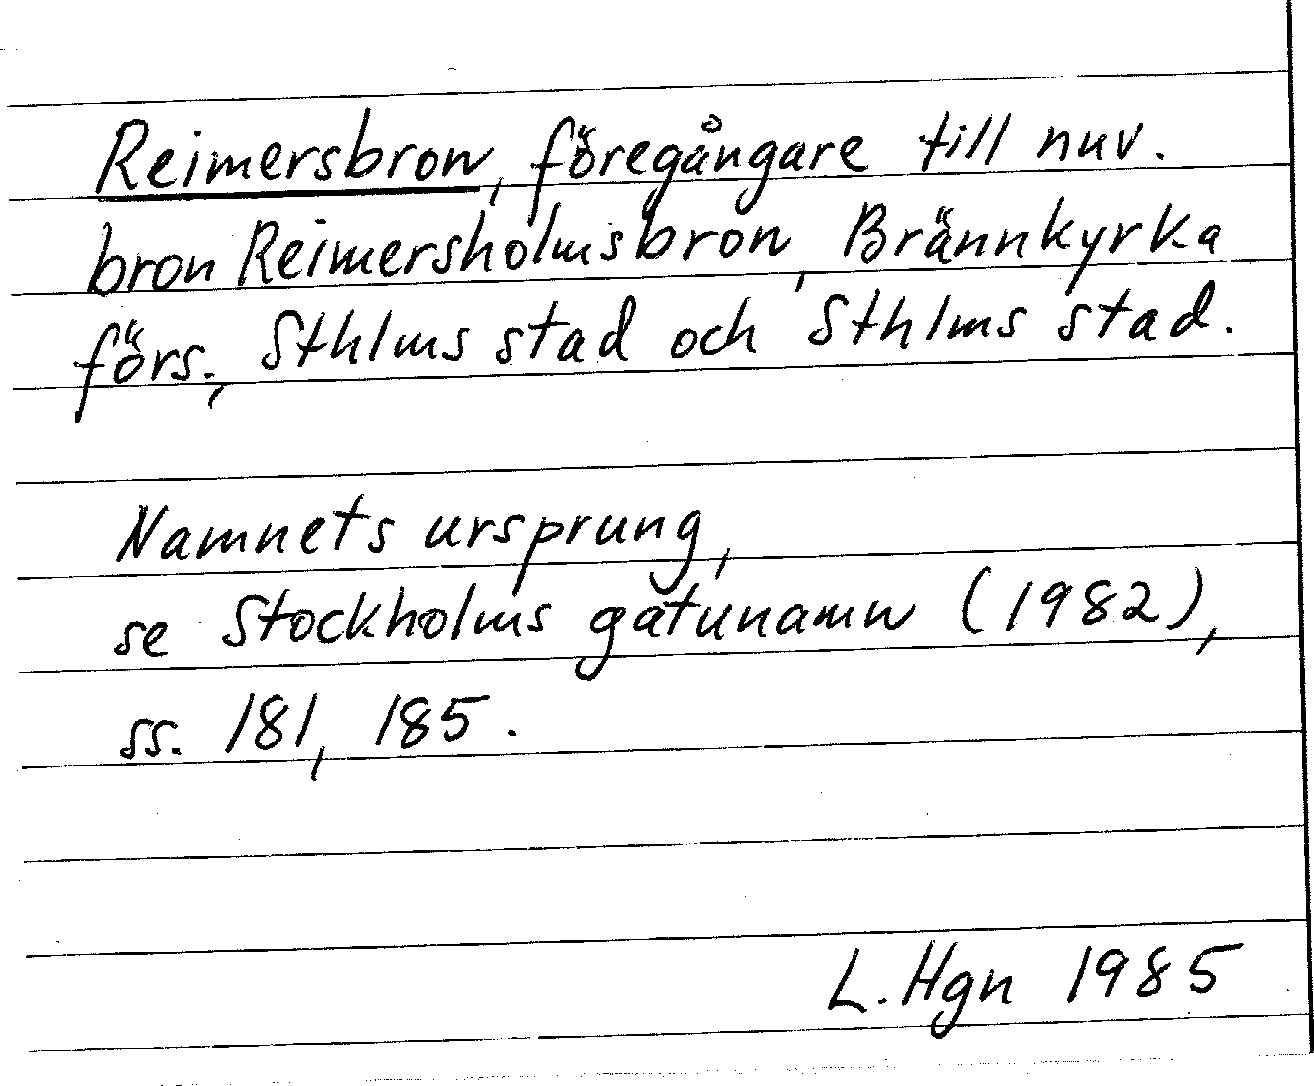 Reimersbron, föregångare till nuv.
bron Reimersholmsbron, Brännkyrka
förs., Sthlms stad och Sthlms stad.
Namnets ursprung,
se Stockholms gatunamn (1982),
ss. 181, 185.
L. Hgn 1985